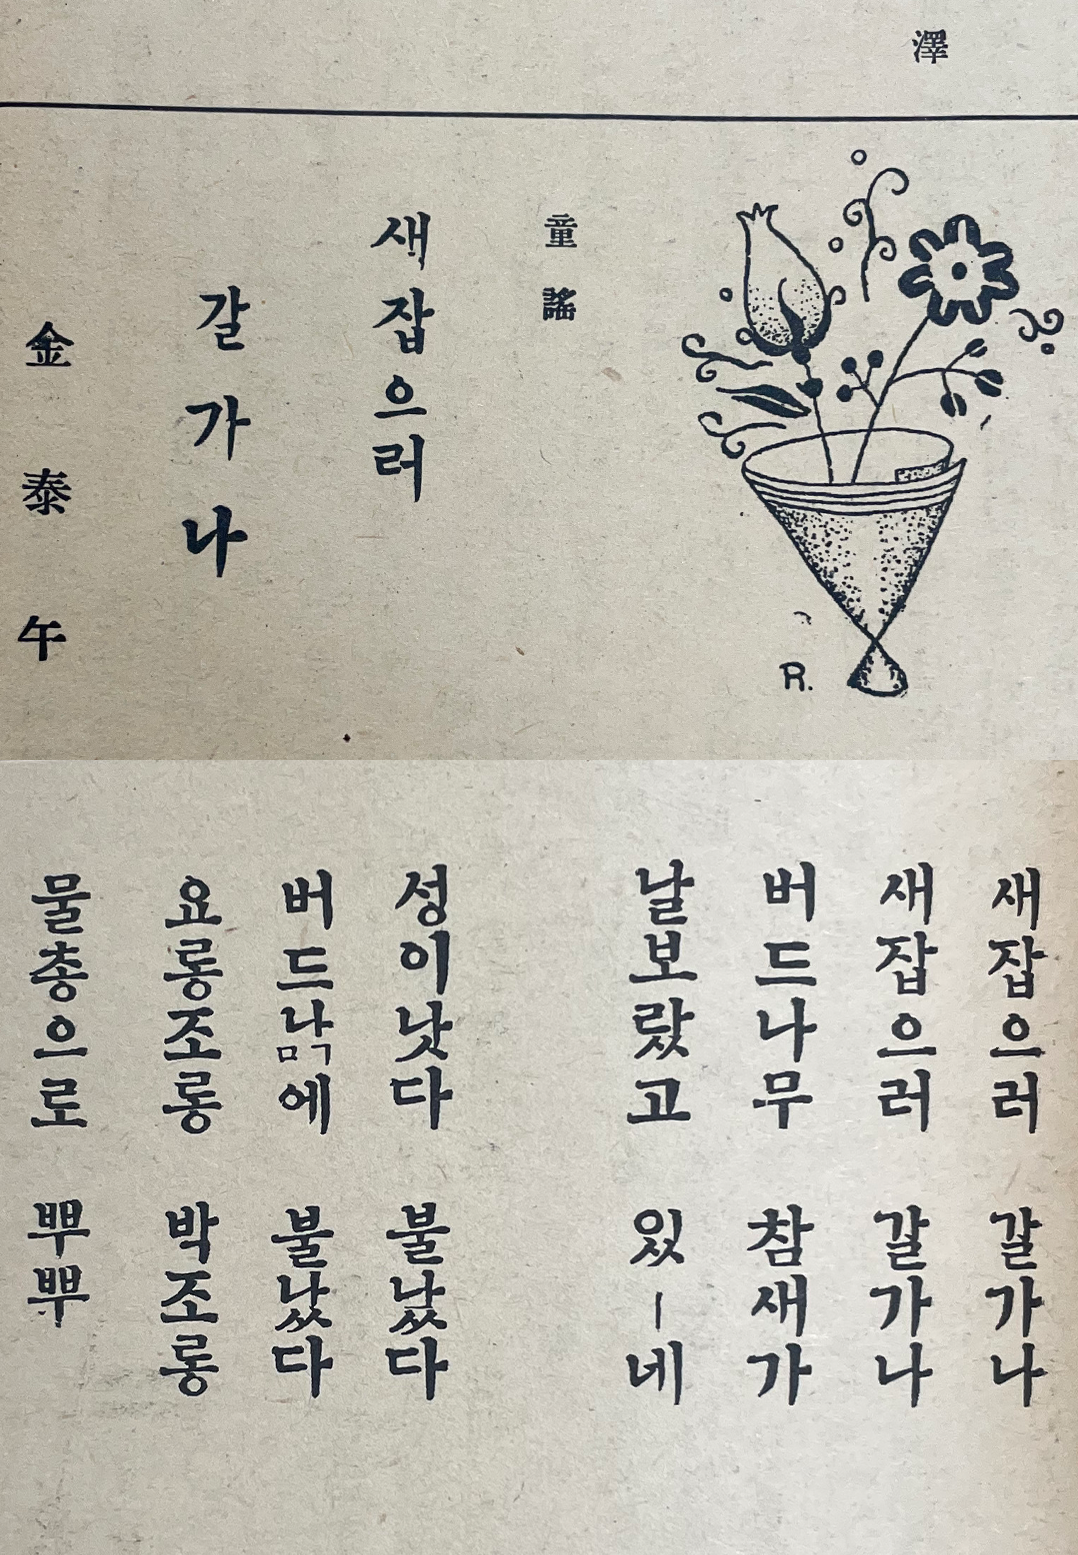 澤
R.
童謠
새잡으러
갈가나
金泰午
새잡으러 갈가나
새잡으러 갈가나
버드나무 참새가
날보랐고 있—네
성이낫다 불났다
버드나ᇚ에 불났다
요롱조롱 박조롱
물총으로 뿌뿌